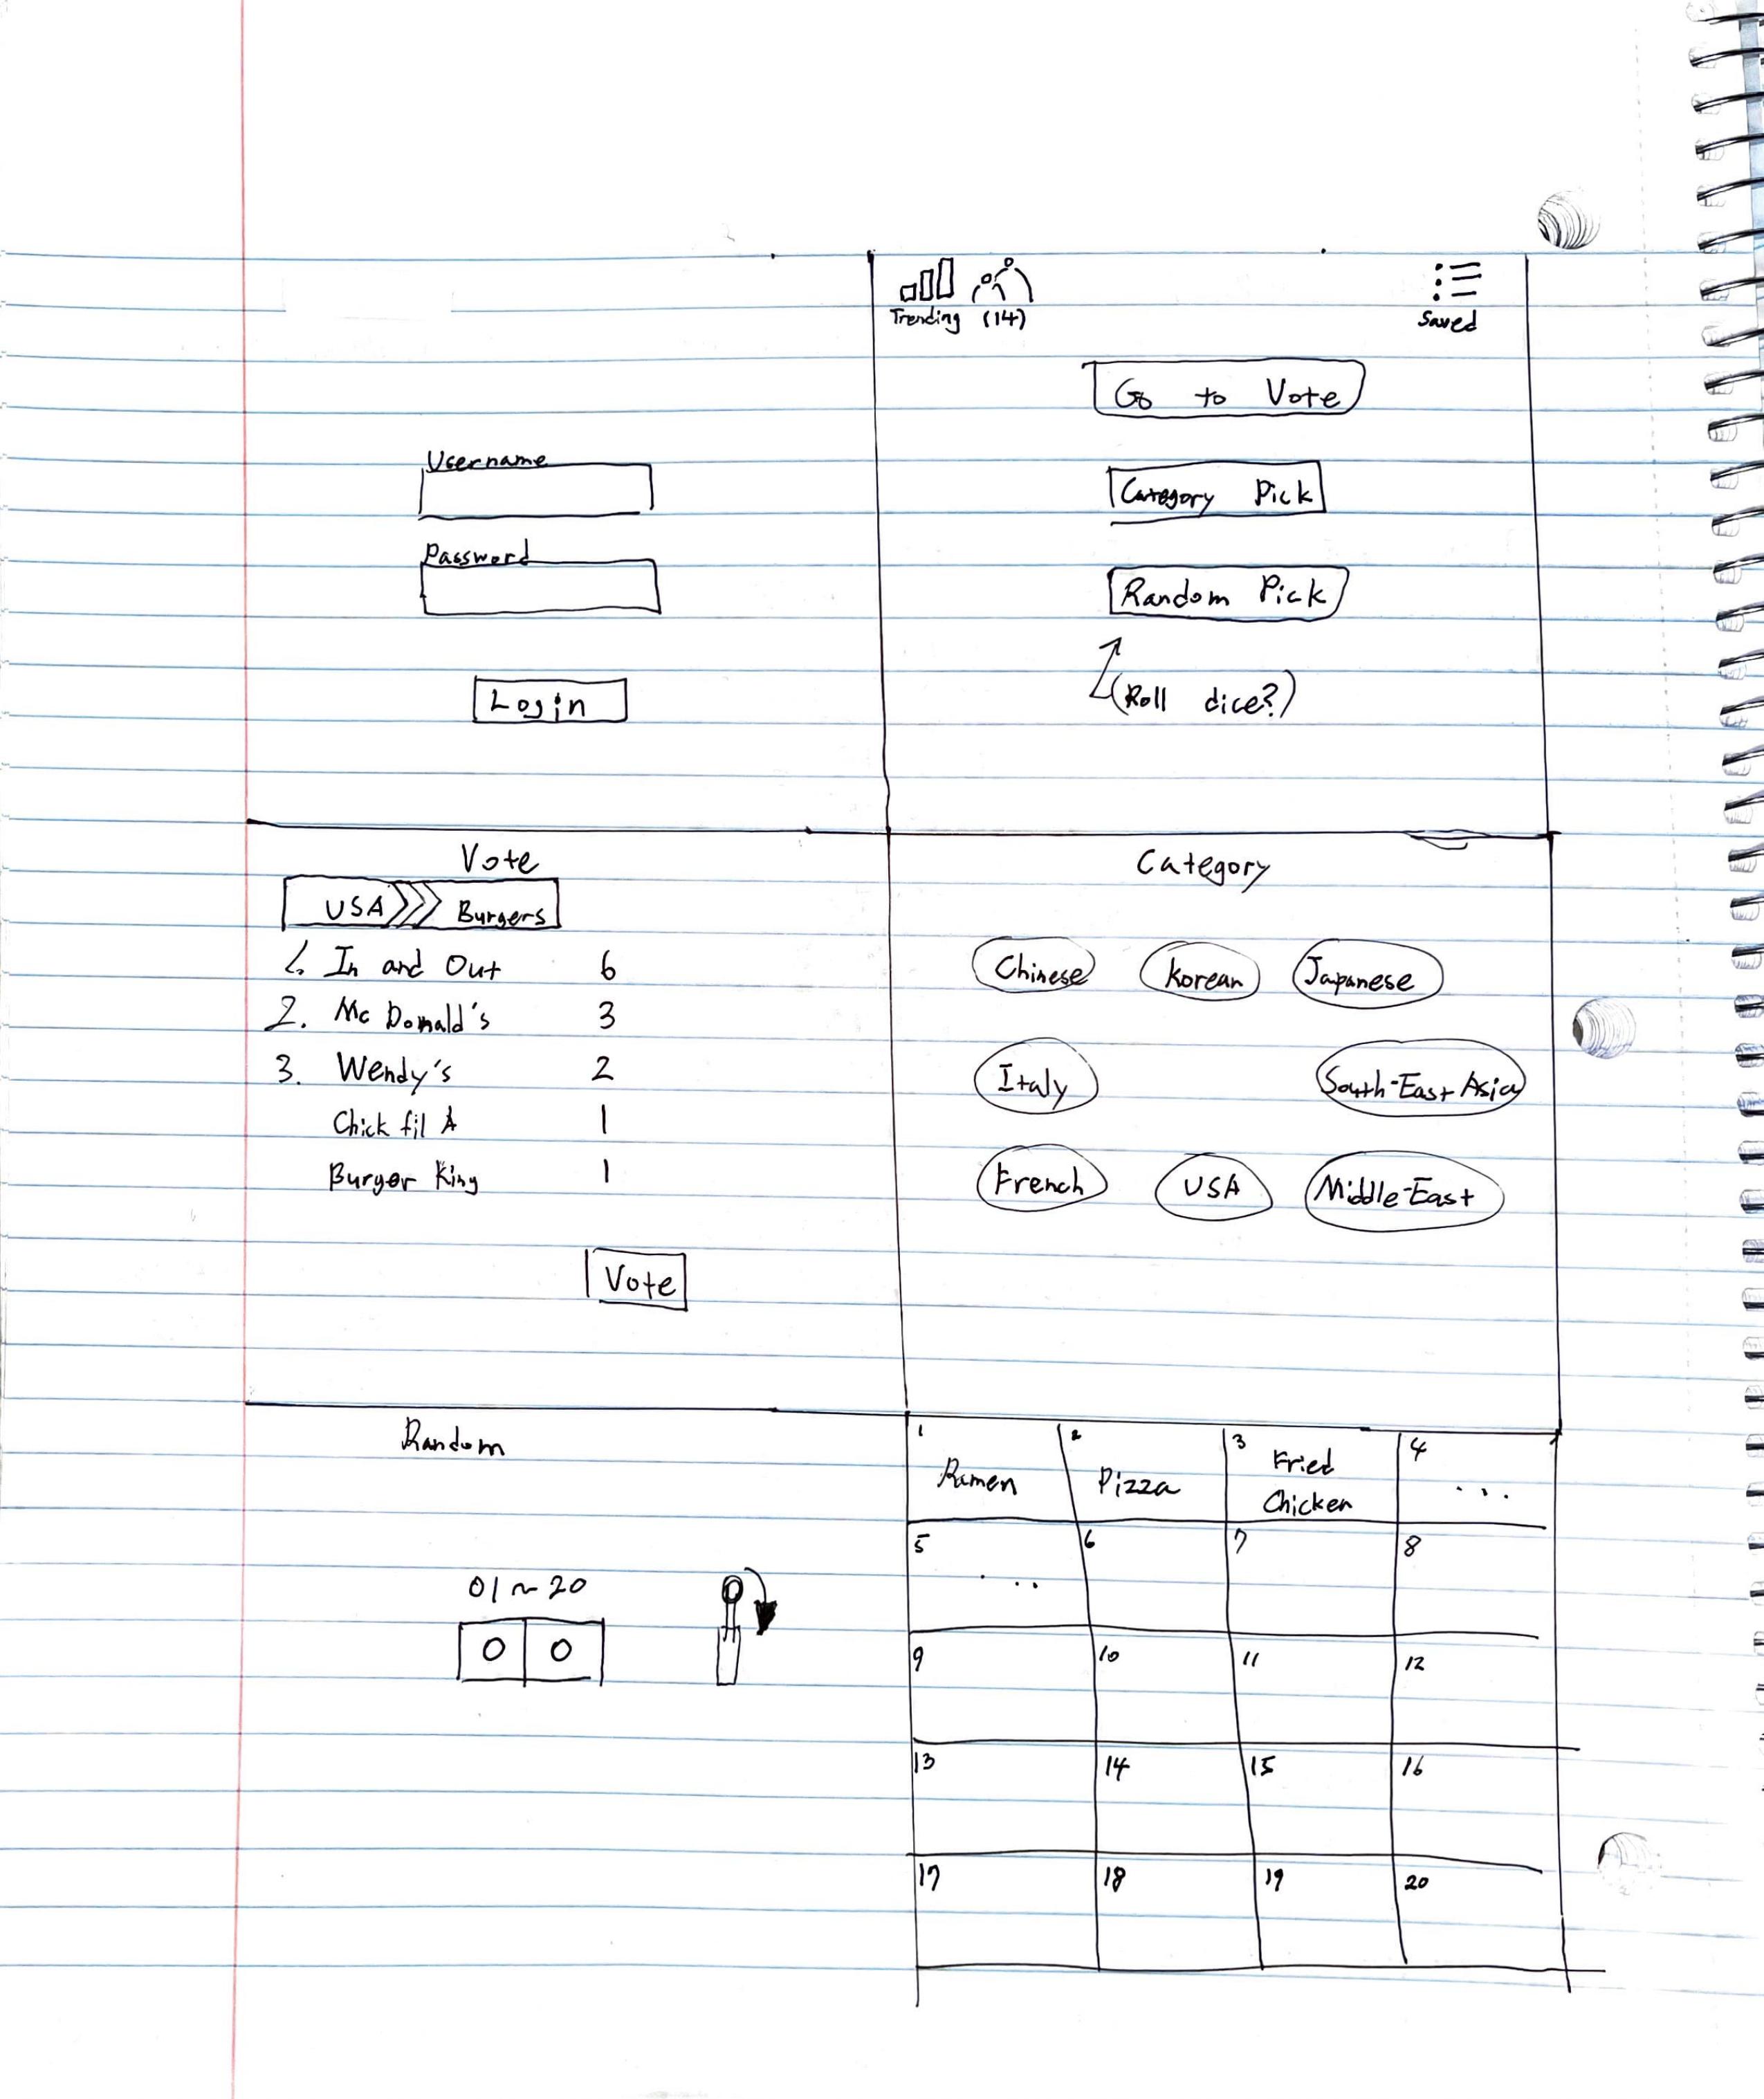 Username
Password
Login
Trending (14)
Saved
Go to Vote
Category Pick
Random Pick
(Roll dice?)
Vote
USA Burgers
1. In and Out 6
2. Mc Donald's 3
3. Wendy's 2
Chick fil A 1
Burger King 1
Vote
Category
Chinese Korean Japanese
Italy South-East Asia
French USA Middle-East
Random
01 ~ 20
0 0
1 2 3 4
Ramen Pizza Fried Chicken ...
5 6 7 8
...
9 10 11 12
13 14 15 16
17 18 19 20